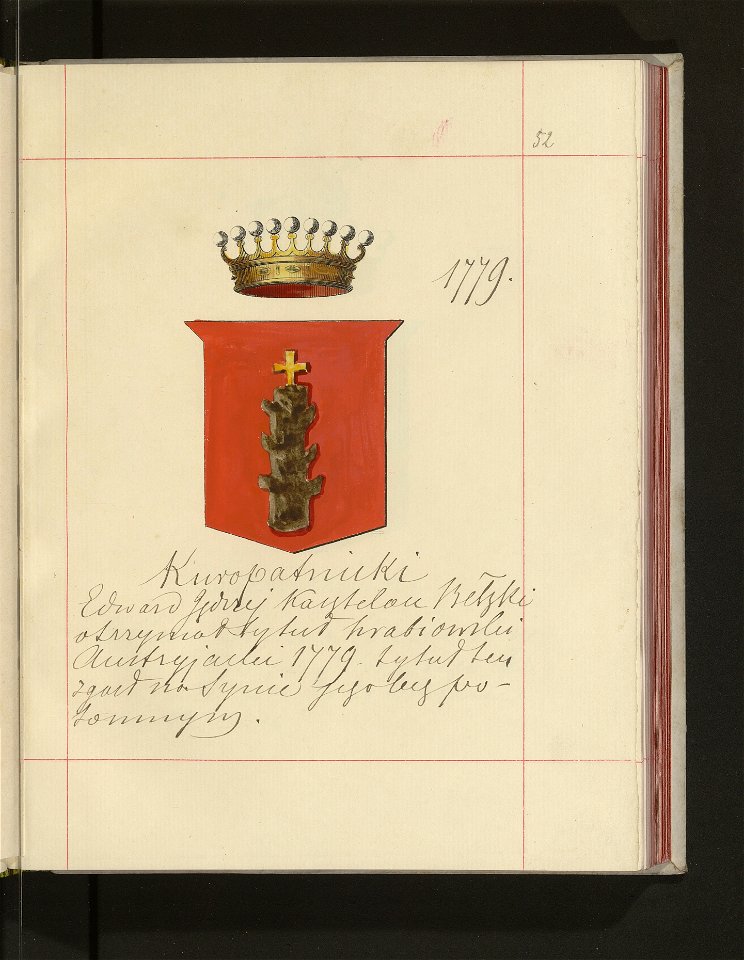 52
1779.
Kuropatnicki
Edward Jędrzej Kasztelan Bełzki
otrzymał tytuł hrabiowski
Austryjacki 1779. tytuł ten
zgasł na Synie jego bezpo-
tomnym.